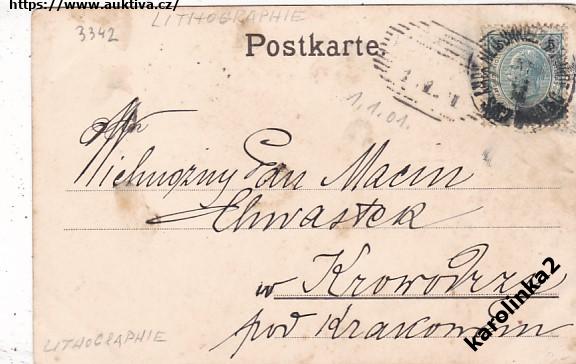 https://www.auktiva.cz/
3342
LITHOGRAPHIE
Postkarte
1.1.01.
Wielmożny Pan Macin
Chwastek
w Krowodrzy
pod Krakowem
LITHOGRAPHIE
karolinka2